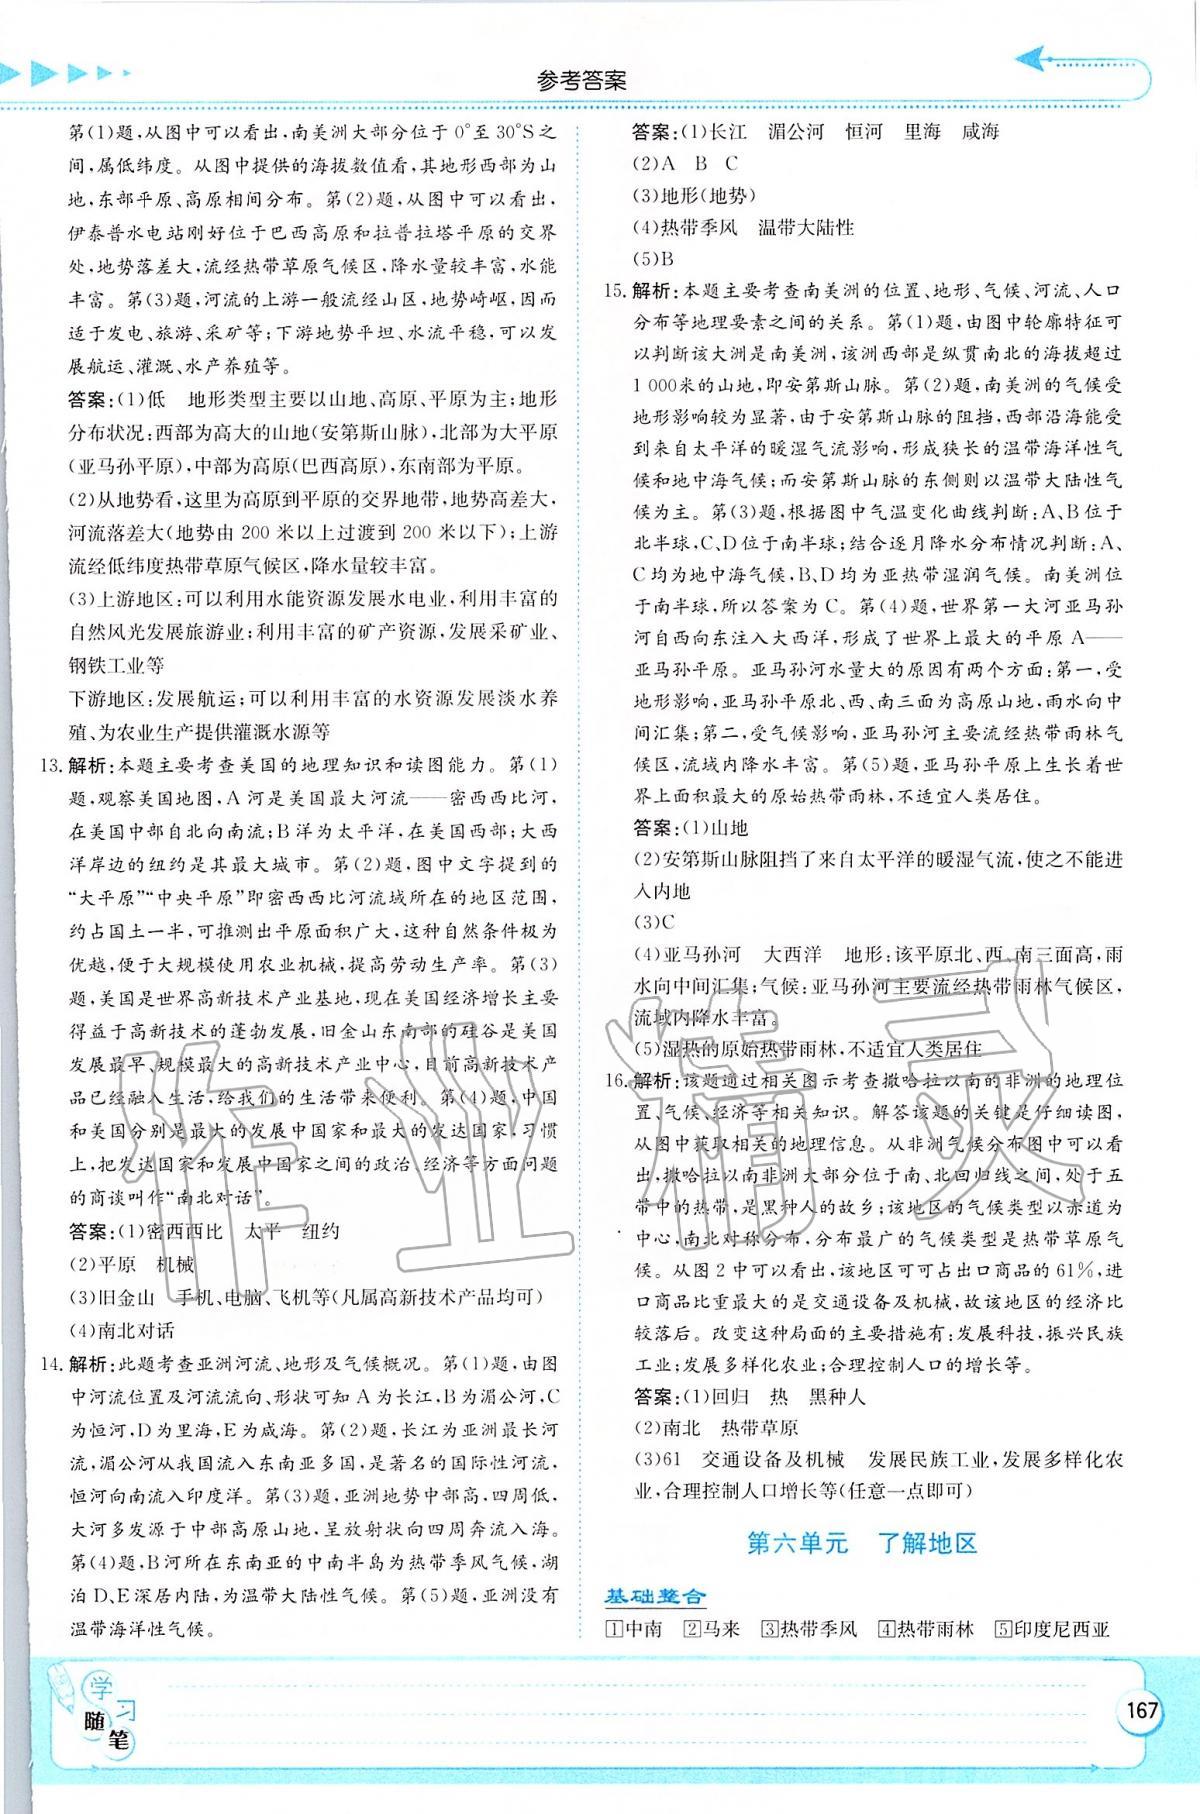 参考答案
第(1)题,从图中可以看出,南美洲大部分位于0°至30°S之
间,属低纬度。从图中提供的海拔数值看,其地形西部为山
地,东部平原、高原相间分布。第(2)题,从图中可以看出,
伊泰普水电站刚好位于巴西高原和拉普拉塔平原的交界
处,地势落差大,流经热带草原气候区,降水量较丰富,水能
丰富。第(3)题,河流的上游一般流经山区,地势崎岖,因而
适于发电、旅游、采矿等;下游地势平坦、水流平稳,可以发
展航运、灌溉、水产养殖等。
答案:(1)低 地形类型主要以山地、高原、平原为主;地形
分布状况:西部为高大的山地(安第斯山脉),北部为大平原
(亚马孙平原),中部为高原(巴西高原),东南部为平原。
(2)从地势看,这里为高原到平原的交界地带,地势高差大,
河流落差大(地势由200米以上过渡到200米以下);上游
流经低纬度热带草原气候区,降水量较丰富。
(3)上游地区:可以利用水能资源发展水电业,利用丰富的
自然风光发展旅游业;利用丰富的矿产资源,发展采矿业、
钢铁工业等
下游地区:发展航运;可以利用丰富的水资源发展淡水养
殖、为农业生产提供灌溉水源等
13.解析:本题主要考查美国的地理知识和读图能力。第(1)
题,观察美国地图,A河是美国最大河流——密西西比河,
在美国中部自北向南流;B洋为太平洋,在美国西部;大西
洋岸边的纽约是其最大城市。第(2)题,图中文字提到的
“大平原”“中央平原”即密西西比河流域所在的地区范围,
约占国土一半,可推测出平原面积广大,这种自然条件极为
优越,便于大规模使用农业机械,提高劳动生产率。第(3)
题,美国是世界高新技术产业基地,现在美国经济增长主要
得益于高新技术的蓬勃发展,旧金山东南部的硅谷是美国
发展最早、规模最大的高新技术产业中心,目前高新技术产
品已经融入生活,给我们的生活带来便利。第(4)题,中国
和美国分别是最大的发展中国家和最大的发达国家,习惯
上,把发达国家和发展中国家之间的政治、经济等方面问题
的商谈叫作“南北对话”。
答案:(1)密西西比 太平 纽约
(2)平原 机械
(3)旧金山 手机、电脑、飞机等(凡属高新技术产品均可)
(4)南北对话
14.解析:此题考查亚洲河流、地形及气候概况。第(1)题,由图
中河流位置及河流流向、形状可知A为长江,B为湄公河,C
为恒河,D为里海,E为咸海。第(2)题,长江为亚洲最长河
流,湄公河从我国流入东南亚多国,是著名的国际性河流,
恒河向南流入印度洋。第(3)题,亚洲地势中部高,四周低,
大河多发源于中部高原山地,呈放射状向四周奔流入海。
第(4)题,B河所在东南亚的中南半岛为热带季风气候,湖
泊D、E深居内陆,为温带大陆性气候。第(5)题,亚洲没有
温带海洋性气候。
答案:(1)长江 湄公河 恒河 里海 咸海
(2)A B C
(3)地形(地势)
(4)热带季风 温带大陆性
(5)B
15.解析:本题主要考查南美洲的位置、地形、气候、河流、人口
分布等地理要素之间的关系。第(1)题,由图中轮廓特征可
以判断该大洲是南美洲,该洲西部是纵贯南北的海拔超过
1 000米的山地,即安第斯山脉。第(2)题,南美洲的气候受
地形影响较为显著,由于安第斯山脉的阻挡,西部沿海能受
到来自太平洋的暖湿气流影响,形成狭长的温带海洋性气
候和地中海气候;而安第斯山脉的东侧则以温带大陆性气
候为主。第(3)题,根据图中气温变化曲线判断:A、B位于
北半球,C、D位于南半球;结合逐月降水分布情况判断:A、
C均为地中海气候,B、D均为亚热带湿润气候。南美洲地区
位于南半球,所以答案为C。第(4)题,世界第一大河亚马孙
河自西向东注入大西洋,形成了世界上最大的平原A——
亚马孙平原。亚马孙河水量大的原因有两个方面:第一,受
地形影响,亚马孙平原北、西、南三面为高原山地,雨水向中
间汇集;第二,受气候影响,亚马孙河主要流经热带雨林气
候区,流域内降水丰富。第(5)题,亚马孙平原上生长着世
界上面积最大的原始热带雨林,不适宜人类居住。
答案:(1)山地
(2)安第斯山脉阻挡了来自太平洋的暖湿气流,使之不能进
入内地
(3)C
(4)亚马孙河 大西洋 地形:该平原北、西、南三面高,雨
水向中间汇集;气候:亚马孙河主要流经热带雨林气候区,
流域内降水丰富。
(5)湿热的原始热带雨林,不适宜人类居住
16.解析:该题通过相关图示考查撒哈拉以南的非洲的地理位
置、气候、经济等相关知识。解答该题的关键是仔细读图,
从图中获取相关的地理信息。从非洲气候分布图中可以看
出,撒哈拉以南非洲大部分位于南、北回归线之间,处于五
带中的热带,是黑种人的故乡;该地区的气候类型以赤道为
中心,南北对称分布,分布最广的气候类型是热带草原气
候。从图2中可以看出,该地区可可占出口商品的61%,进
口商品比重最大的是交通设备及机械,故该地区的经济比
较落后。改变这种局面的主要措施有:发展科技,振兴民族
工业;发展多样化农业;合理控制人口的增长等。
答案:(1)回归 热 黑种人
(2)南北 热带草原
(3)61 交通设备及机械 发展民族工业,发展多样化农
业,合理控制人口增长等(任意一点即可)
第六单元 了解地区
基础整合
1中南 2马来 3热带季风 4热带雨林 5印度尼西亚
学习随笔
167
作业精灵